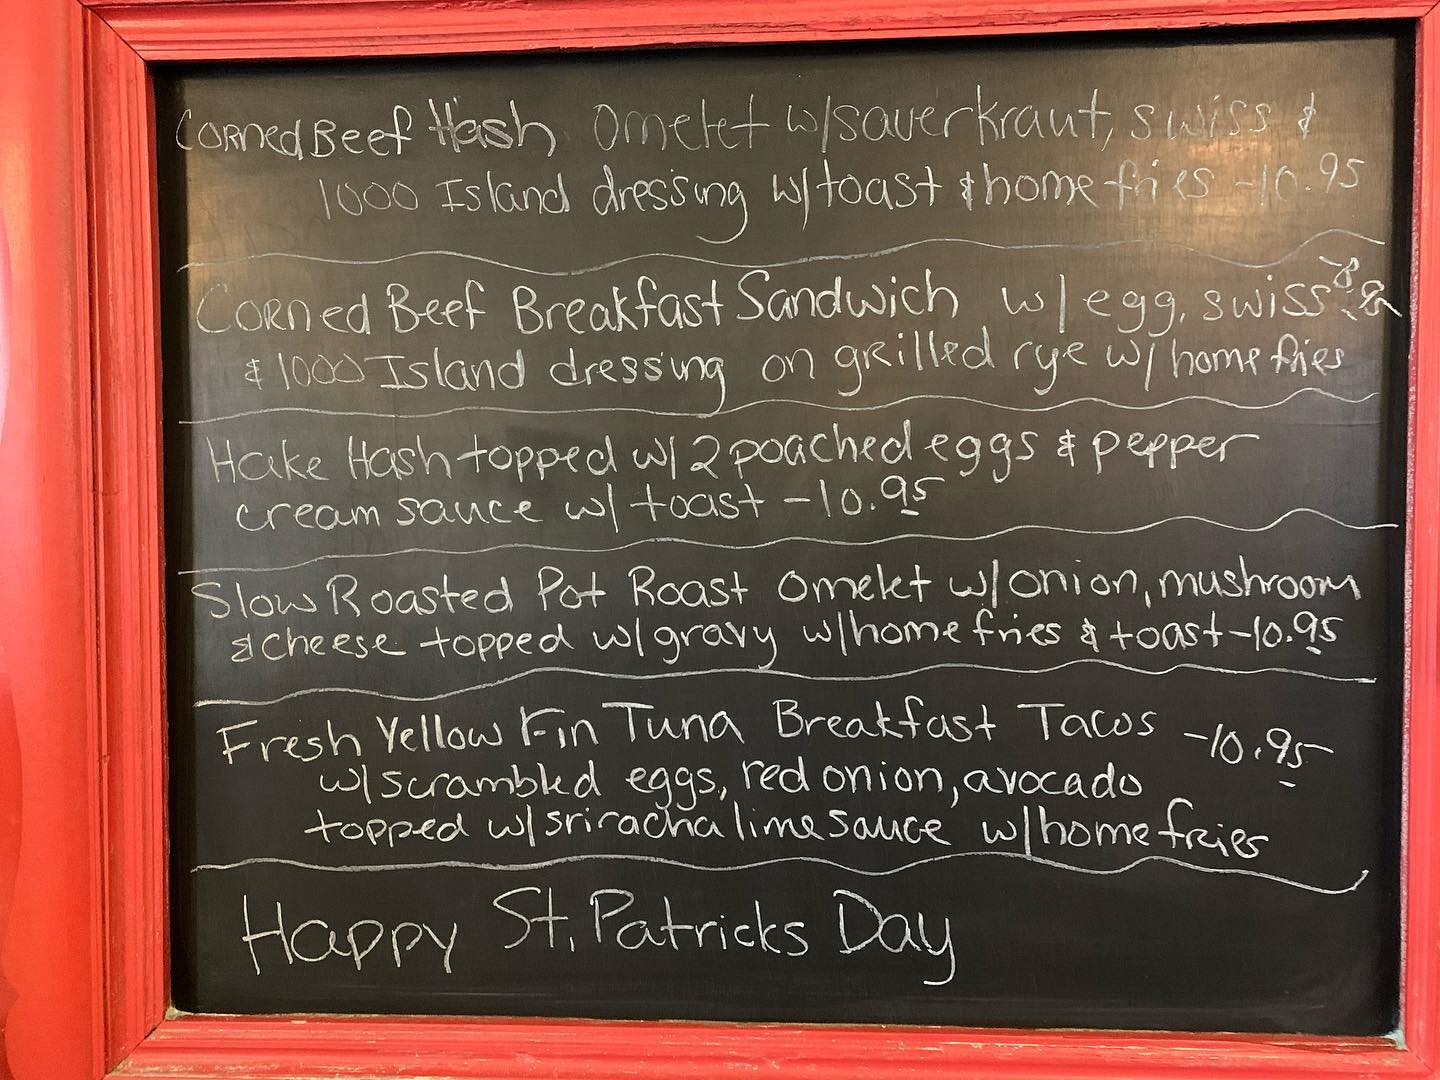 Corned Beef Hash Omelet w/sauerkraut, swiss &
1000 Island dressing w/toast & home fries -10.95
Corned Beef Breakfast Sandwich w/ egg, swiss
& 1000 Island dressing on grilled rye w/ home fries
Hake Hash topped w/ 2 poached eggs & pepper
cream sauce w/ toast -10.95
Slow Roasted Pot Roast Omelet w/onion, mushroom
& cheese topped w/gravy w/home fries & toast -10.95
Fresh Yellow Fin Tuna Breakfast Tacos -10.95
w/scrambled eggs, red onion, avocado
topped w/sriracha lime sauce w/home fries
Happy St. Patricks Day